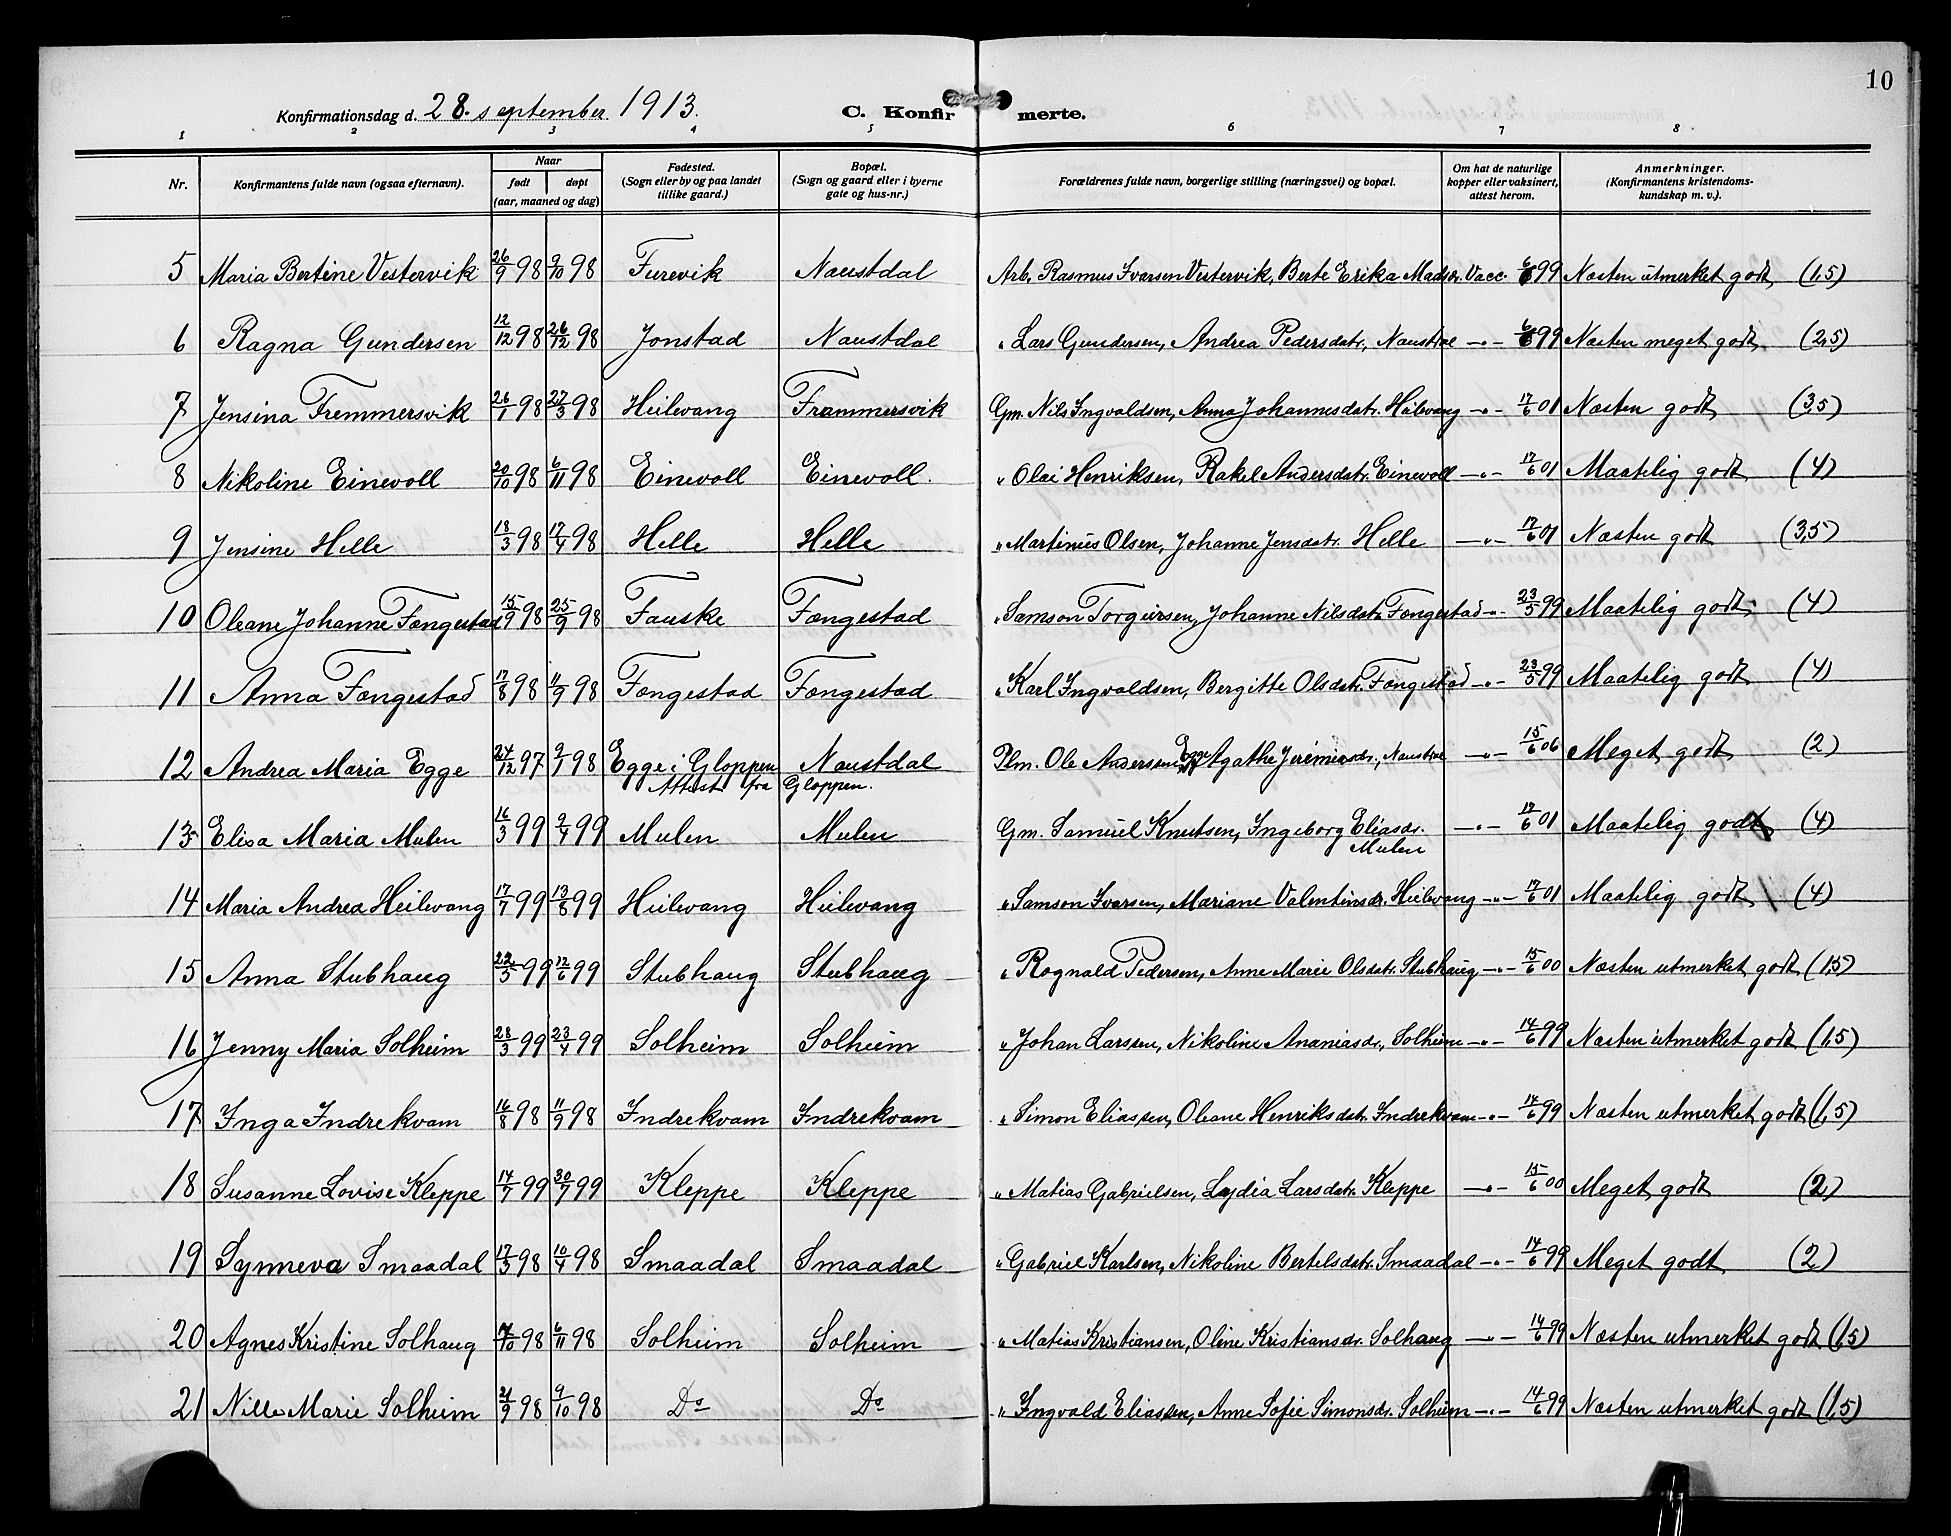 10
Konfirmationsdag d. 28. september 1913. C. Konfirmerte.
1 2 3 4 5 6 7 8
Nr. Konfirmantens fulde navn (ogsaa efternavn). Naar født døpt (aar, maaned og dag) Fødested. (Sogn eller by og paa landet tillike gaard.) Bopæl. (Sogn og gaard eller i byerne gate og hus-nr.) Forældrenes fulde navn, borgerlige stilling (næringsvei) og bopæl. Om hat de naturlige kopper eller vaksinert, attest herom. Anmerkninger. (Konfirmantens kristendomskundskap m. v.).
5 Maria Bertine Vestervik 26/9 98 9/10 98 Furevik Naustdal Arb. Rasmus Iversen Vestervik, Berte Erika Madsdr. Vacc. 6/6 99 Næsten utmerket godt (1,5)
6 Ragna Gundersen 12/12 98 26/12 98 Jonstad Naustdal " Lars Gundersen, Andrea Pedersdatr., Naustdal —"— 6/6 99 Næsten meget godt. (2,5)
7 Jensina Fremmersvik 26/1 98 27/3 98 Heilevang Frammersvik Gm. Nils Ingvaldsen, Anna Johannesdatr. Heilevang —"— 17/6 01 Næsten godt (3,5)
8 Nikoline Einevoll 20/10 98 6/11 98 Einevoll Einevoll. " Olai Henriksen, Rakel Andersdatr. Einevoll —"— 17/6 01 Maatelig godt (4)
9 Jensine Helle 18/3 98 17/4 98 Helle Helle " Martinus Olsen, Johanne Jensdatr. Helle —"— 17/6 01 Næsten godt (3,5)
10 Oleane Johanne Fængestad 15/9 98 25/9 98 Fauske Fængestad " Samson Torgiersen, Johanne Nilsdatr. Fængestad —"— 23/5 99 Maatelig godt. (4)
11 Anna Fængestad 17/8 98 11/9 98 Fængestad Fængestad " Karl Ingvaldsen, Bergitte Olsdatr. Fængestad —"— 23/5 99 Maatelig godt (4)
12 Andrea Maria Egge 24/12 97 9/1 98 Egge i Gloppen Naustdal Plm. Ole Andersen Egge, Agathe Jeremiasdr., Naustdal —"— 15/6 06 Meget godt (2)
Attest fra Gloppen.
13 Elisa Maria Mulen 16/3 99 9/4 99 Mulen Mulen Gm. Samuel Knutsen, Ingeborg Eliasdr. Mulen —"— 17/6 01 Maatelig godt (4)
14 Maria Andrea Heilevang 17/7 99 13/8 99 Heilevang Heilevang " Samson Iversen, Mariane Valentinsdr. Heilevang —"— 17/6 01 Maatelig godt (4)
15 Anna Stubhaug 22/5 99 12/6 99 Stubhaug Stubhaug " Rognald Pedersen, Anne Marie Olsdatr. Stubhaug —"— 15/6 00 Næsten utmerket godt (1,5)
16 Jenny Maria Solheim 28/3 99 23/4 99 Solheim Solheim " Johan Larssen, Nikoline Ananiasdr., Solheim —"— 14/6 99 Næsten utmerket godt (1,5)
17 Inga Indrekvam 16/8 98 11/9 98 Indrekvam Indrekvam " Simon Eliassen, Oleane Henriksdatr. Indrekvam —"— 14/6 99 Næsten utmerket godt (1,5)
18 Susanne Lovise Kleppe 14/7 99 30/7 99 Kleppe Kleppe " Matias Gabrielsen, Lydia Larsdatr. Kleppe —"— 15/6 00 Meget godt (2)
19 Synneva Smaadal 17/3 98 10/4 98 Smaadal Smaadal " Gabriel Karlsen, Nikoline Bertelsdatr. Smaadal —"— 14/6 99 Meget godt (2)
20 Agnes Kristine Solhaug 7/10 98 6/11 98 Solheim Solheim " Matias Kristiansen, Oline Kristiansdr. Solhaug —"— 14/6 99 Næsten utmerket godt (1,5)
21 Nille Marie Solheim 21/9 98 9/10 98 Do Do " Ingvald Eliassen, Anne Sofie Simonsdr. Solheim —"— 14/6 99 Næsten utmerket godt (1,5)